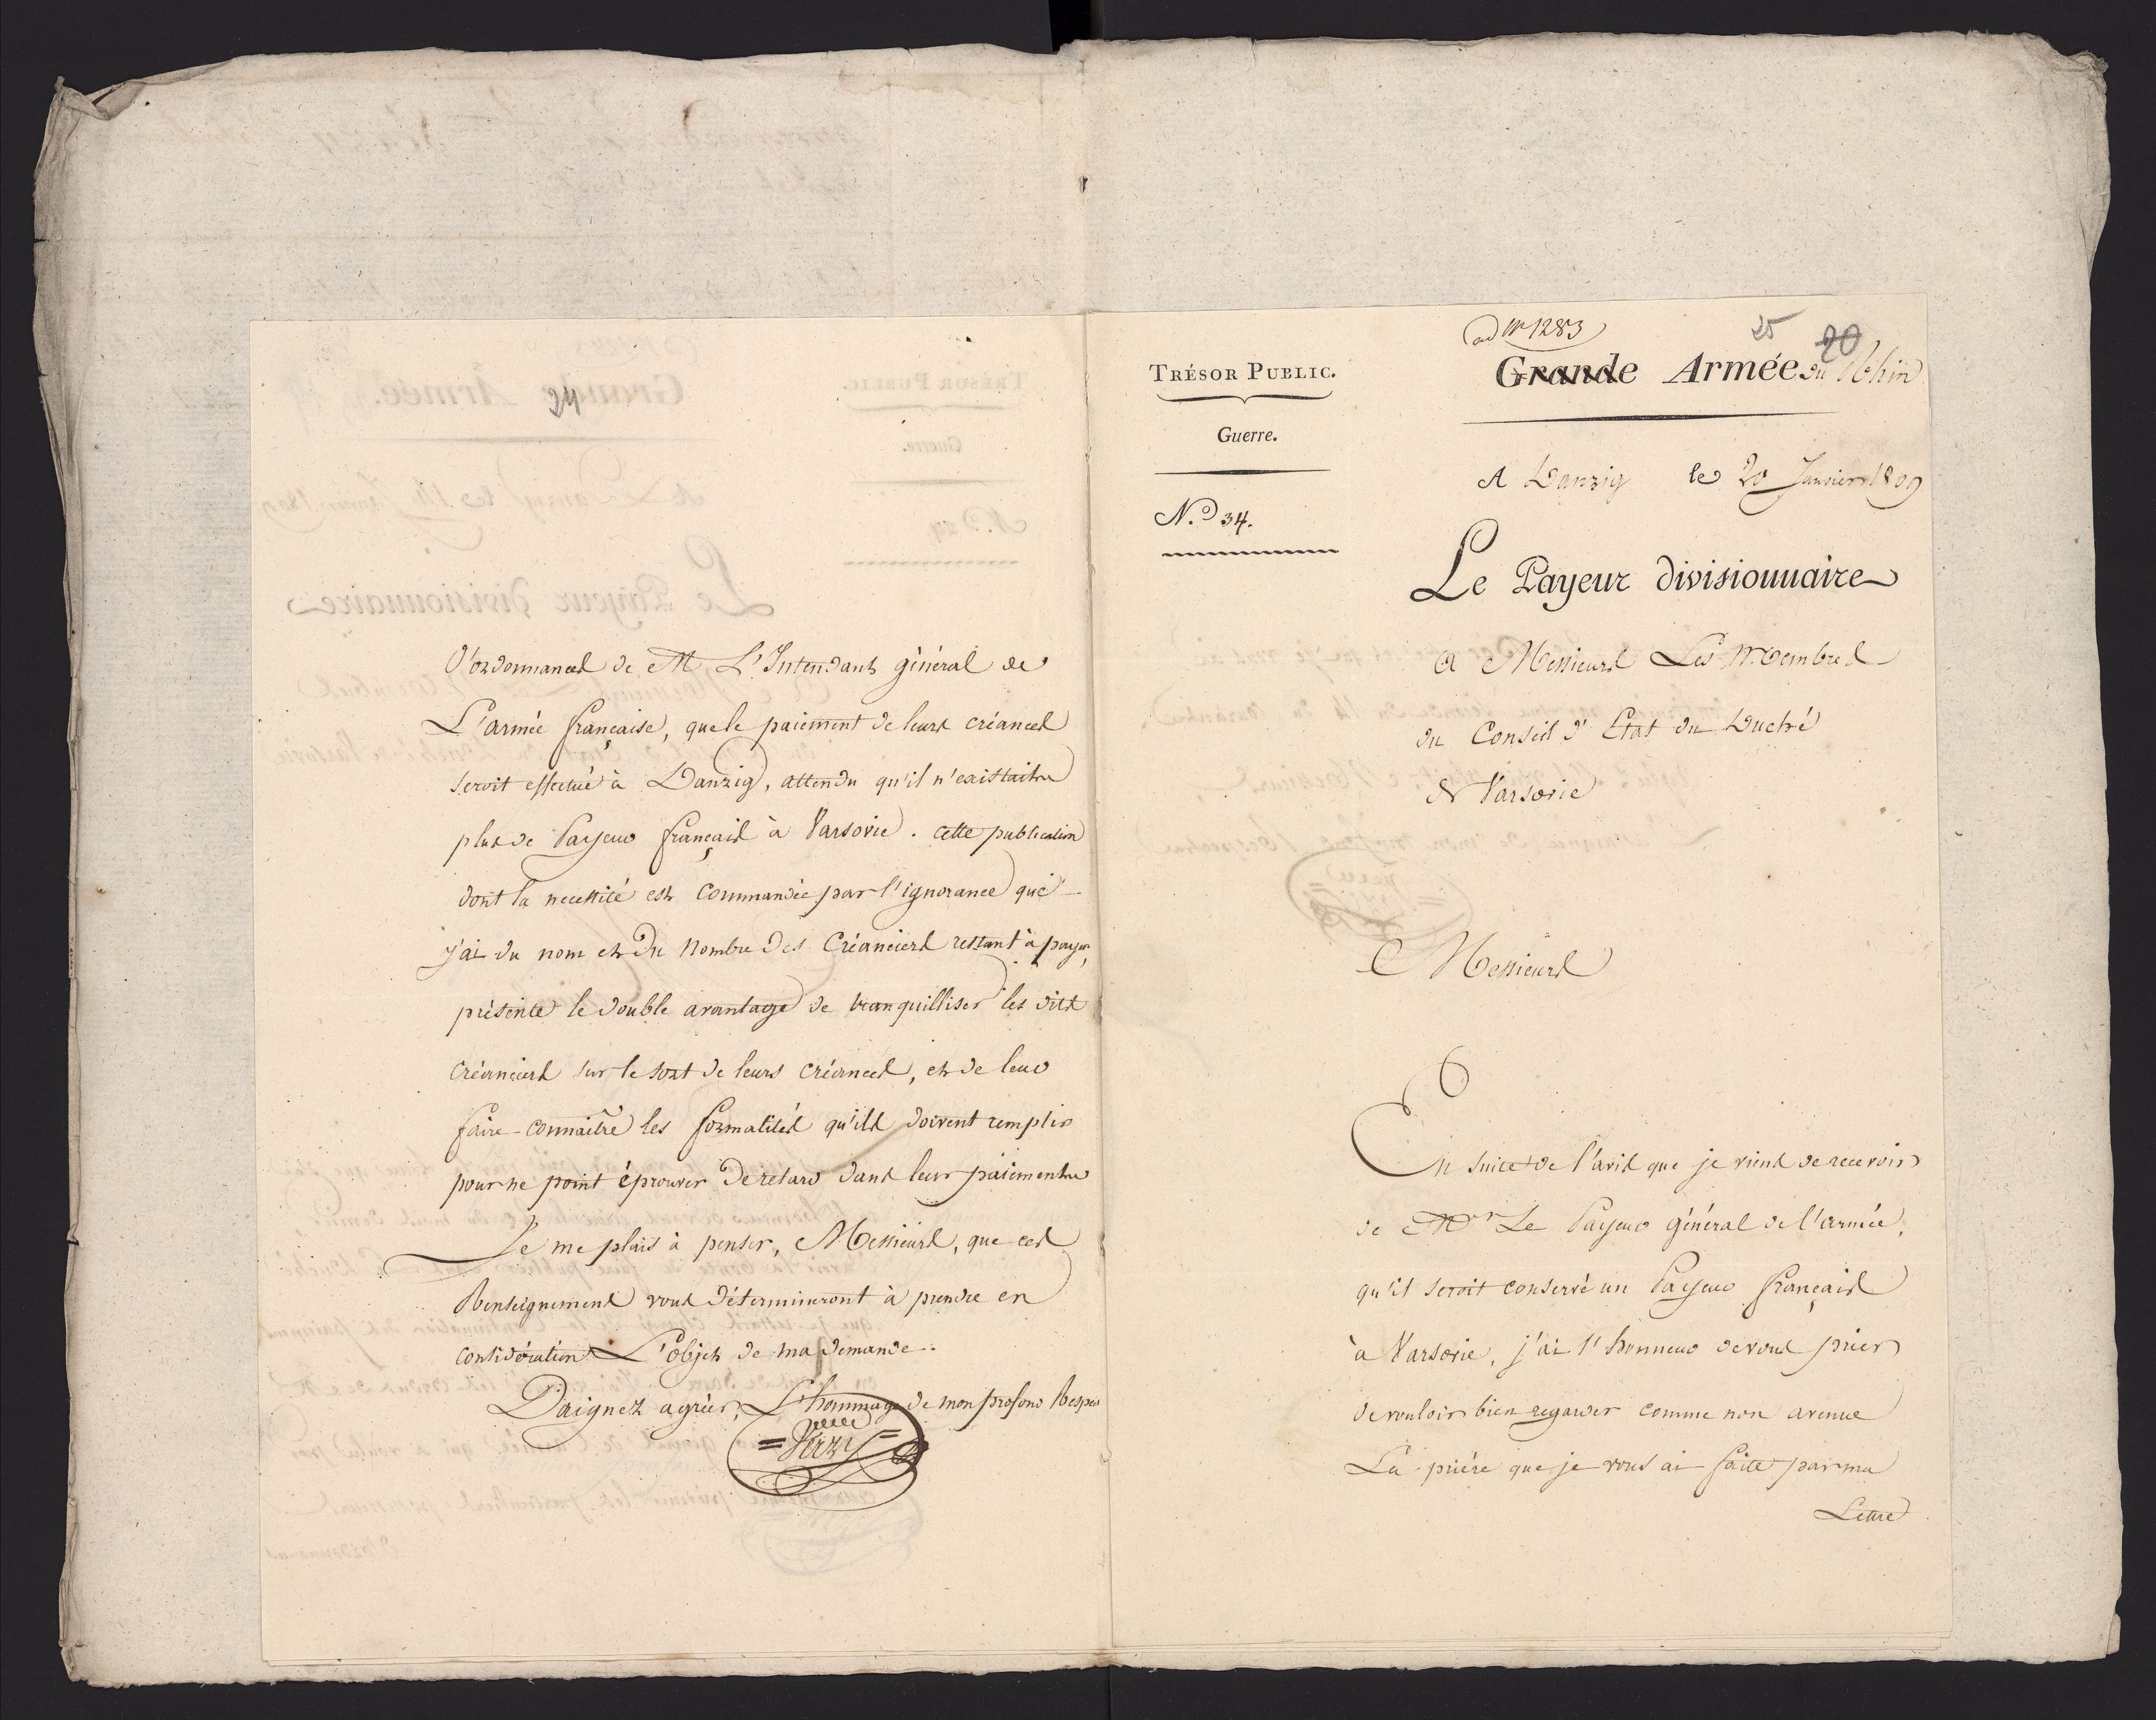 24
d'ordonnances de M. L'Intendant général de
L'armée française, que le paiement de leurs créances
seroit effectué à Danzig, attendu qu'il n'existait
plus de Payeur français à Varsovie. cette publication
dont la necessité est commandée par l'ignorance que
j'ai du nom et du nombre des Créanciers restant à payer,
présente le double avantage de tranquilliser les dits
créanciers sur le sort de leurs créances, et de leur
faire connaître les formalités qu'ils doivent remplir
pour ne point éprouver de retard dans leur paiement
Je me plais à penser, Messieurs, que ces
Renseignemens vous détermineront à prendre en
considération L'objet de ma demande.
Daignez agréer, L'hommage de mon profond Respect
ad N 1283
25
20
TRÉSOR PUBLIC.
Grande Armée du Rhin
Guerre.
A Danzig le 20 Janvier 1809
N.º 34.
Le Payeur divisionnaire
A Messieurs Les Membres
du Conseil d'Etat du Duché
de Varsovie
Messieurs
En suite de l'avis que je viens de recevoir
de M.r Le Payeur général de l'armée,
qu'il seroit conservé un Payeur français
à Varsovie, j'ai l'honneur de vous prier
de vouloir bien regarder comme non avenue
La prière que je vous ai faite par ma
Lettre